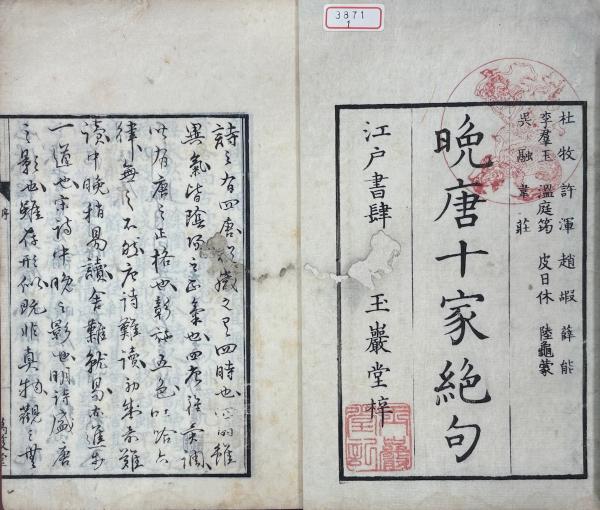 3871
1
杜牧 許渾 趙嘏 薛能
李羣玉 溫庭筠 皮日休 陸龜蒙
吳融 韋莊
晩唐十家絶句
江戸書肆 玉巖堂梓
詩之有四唐猶歳之有四時也
異氣皆陰陽之正氣也四唐雖
以有唐之正格也 五色
律無之不然唐詩難讀初盛亦難
讀中晩稍易讀舎難就易亦進步
一道也宋詩中晩之影也明詩盛唐
之影也雖存形似既非真物觀之
序